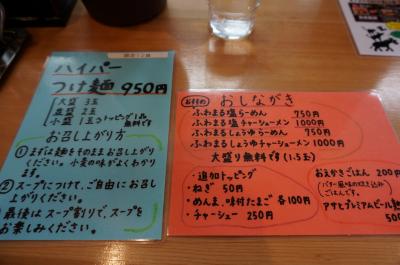 ハイパー
つけ麺 950円
大盛 3玉
並盛 2玉
小盛 1玉 トッピング1品
無料です
お召し上がり方
① まずは麺をそのままお召し上がり
ください。小麦の味がよくわかり
ます。
② スープにつけて、ご自由にお召し
上がりください。
最後はスープ割りで、スープを
お楽しみください。
おすすめ おしながき
ふわまる塩らーめん 750円
ふわまる塩チャーシューメン 1000円
ふわまるしょうゆらーめん 750円
ふわまるしょうゆチャーシューメン 1000円
大盛り無料です(1.5玉)
・追加トッピング
・ねぎ 50円
・めんま、味付たまご 各100円
・チャーシュー 250円
おえかきごはん 200円
(バター風味の炊き込み
ごはんです。
アサヒプレミアムビール